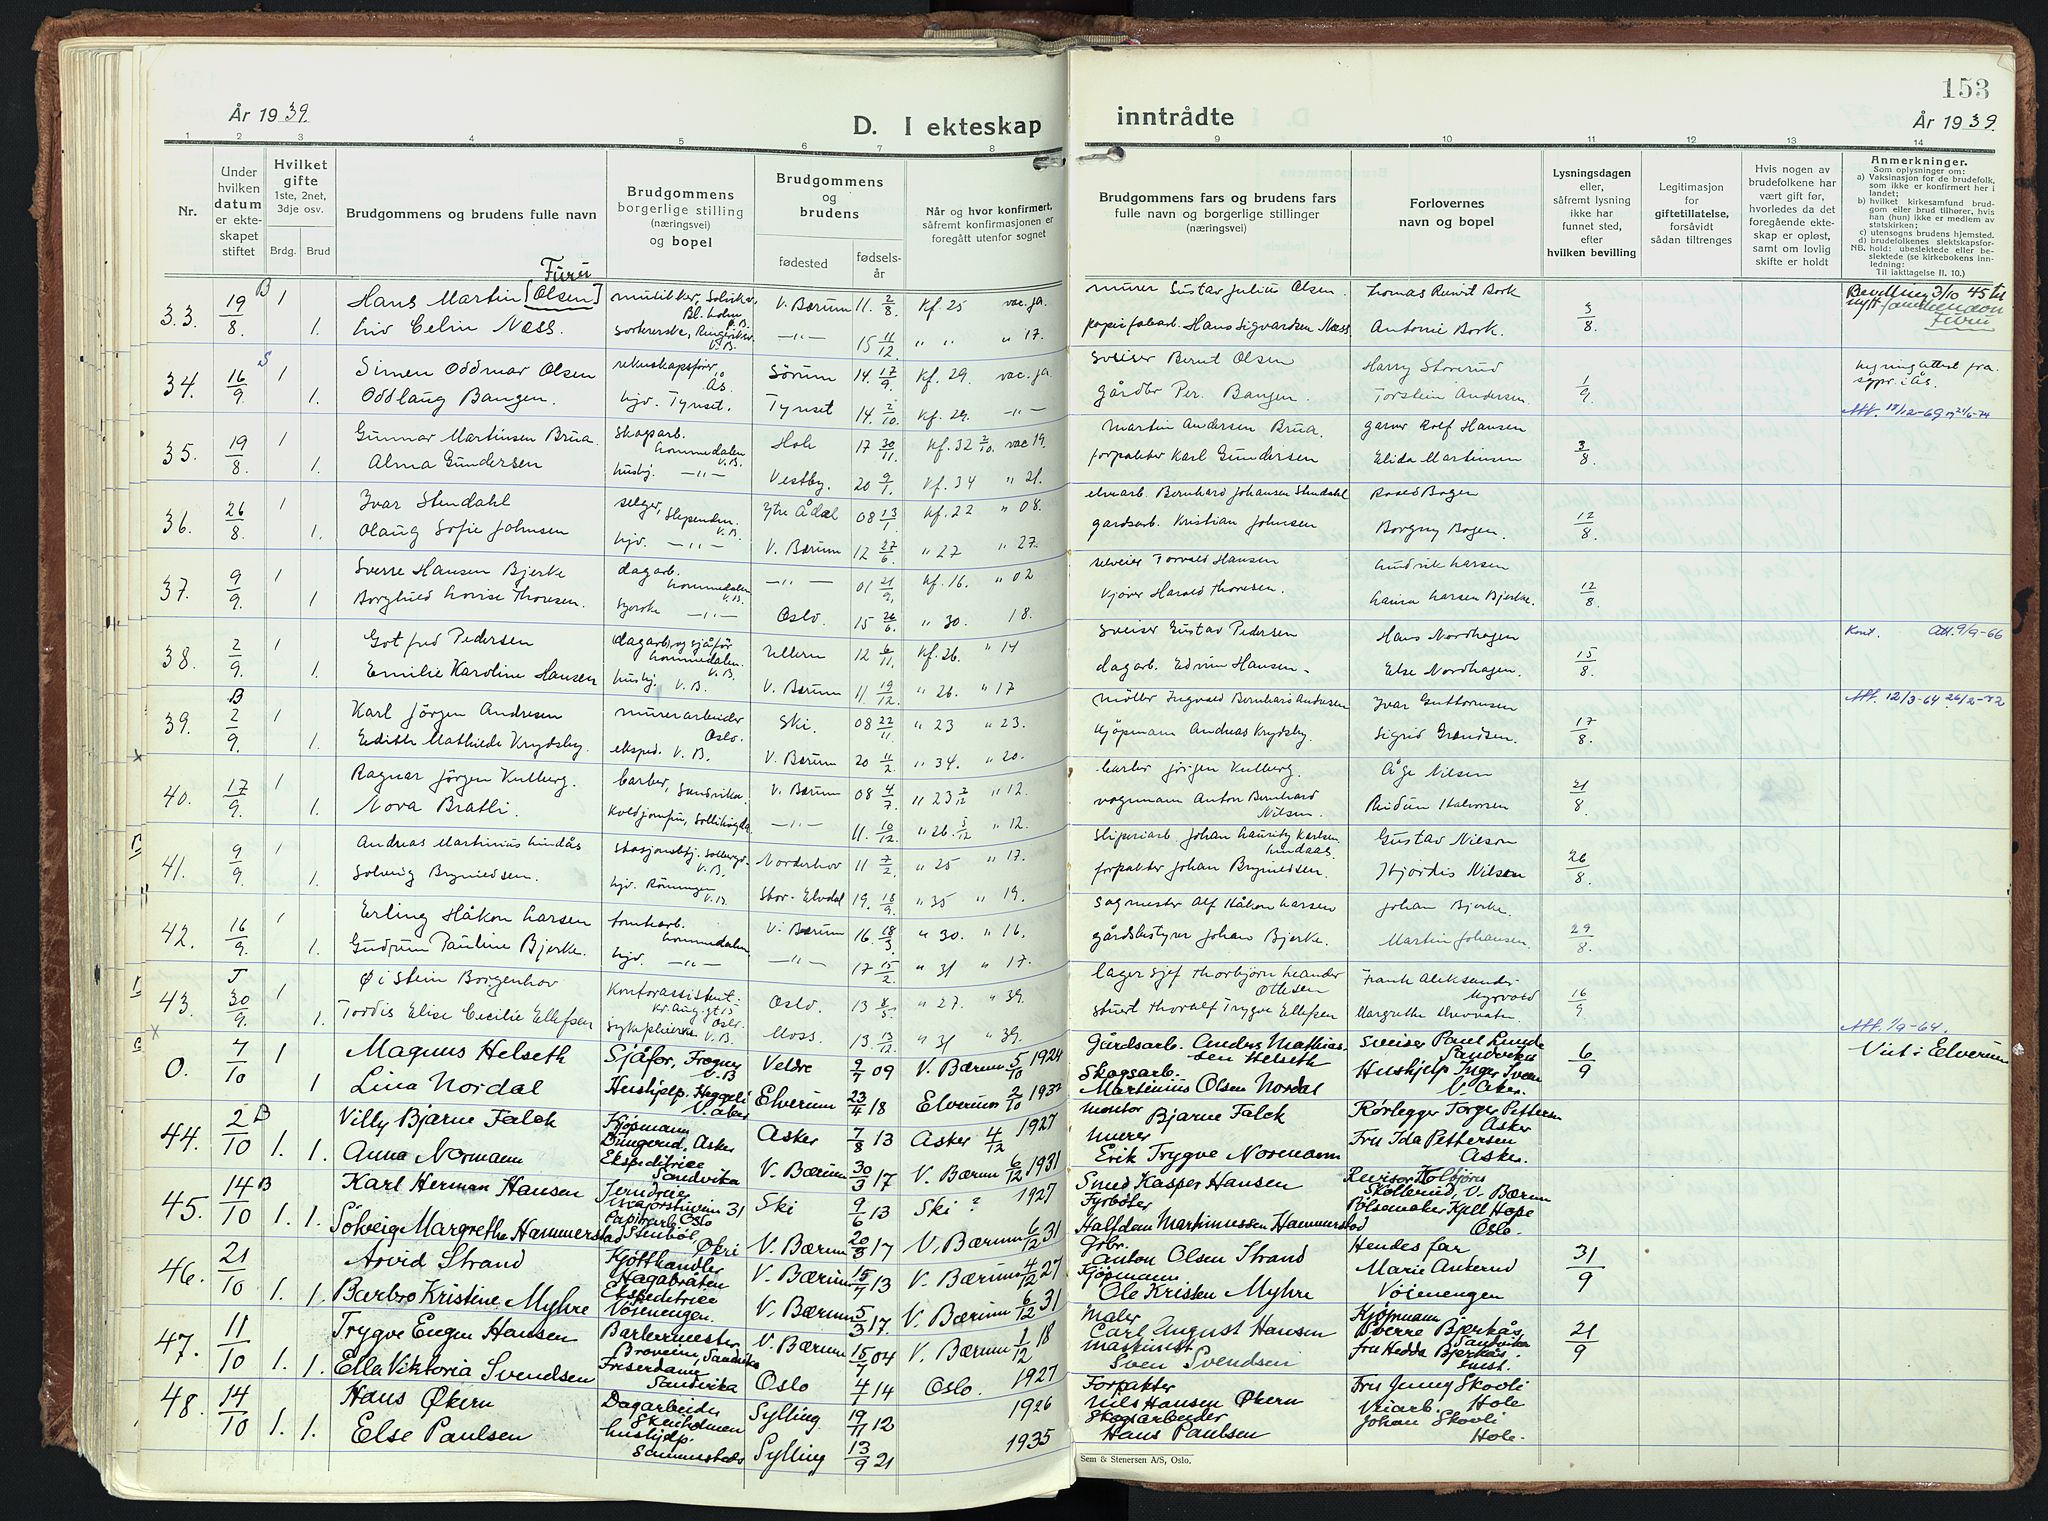 153
År 1939.
D. I ekteskap inntrådte
År 1939.
1 2 3 4 5 6 7 8 9 10 11 12 13 14
Nr.
Under hvilken datum er ekteskapet stiftet
Hvilket gifte 1ste, 2net, 3dje osv. Brdg. Brud
Brudgommens og brudens fulle navn
Brudgommens borgerlige stilling (næringsvei) og bopel
Brudgommens og brudens fødested fødselsår
Når og hvor konfirmert, såfremt konfirmasjonen er foregått utenfor sognet
Brudgommens fars og brudens fars fulle navn og borgerlige stillinger (næringsvei)
Forlovernes navn og bopel
Lysningsdagen eller, såfremt lysning ikke har funnet sted, efter hvilken bevilling
Legitimasjon for giftetillatelse, forsåvidt sådan tiltrenges
Hvis nogen av brudefolkene har vært gift før, hvorledes da det foregående ekteskap er opløst, samt om lovlig skifte er holdt
Anmerkninger.
Som oplysninger om:
a) Vaksinasjon for de brudefolk, som ikke er konfirmert her i landet;
b) hvilket kirkesamfund brudgom eller brud tilhører, hvis han (hun) ikke er medlem av statskirken;
c) utensogns brudens hjemsted.
d) brudefolkenes slektskapsforhold: ubeslektede eller beslektede (se kirkebokens innledning:
NB. Til iakttagelse II. 10.)
Furu
33. 19/8 B 1 Hans Martin [Olsen] V. Bærum 11 2/8 Kf. 25 vac. ja. murer Gustav Julius Olsen. Thomas Bork 3/8 Bevilling 3/10 45 til
1. Celin Næss. V.B. —"— 15 11/12 " " " 17. Hans Sigvardsen Næss Antonie Bork.
Furu
34. 16/9 S 1 Simen Oddmar Olsen rekenskapsfører, Ås Sørum 14. 17/9. Kf. 29. vac. ja. Sveiser Bernt Olsen Harry Storerud 1/9. lysningattest fra sgpr. i Ås.
1. Oddlaug Bangen. hjv. Tynset. Tynset 14 2/10. Kf. 29. —"— gårdbr Per. Bangen. Torstein Andersen.
Att. 18/12-69
35. 19/8 1 Gunnar Martinsen Brua. skogarb. Lommedalen V.B. Hole 17 30/11. Kf. 32 2/10. vac 19. Martin Andersen Brua. Rolf Hansen 3/8.
1. Alma Gundersen hushj. —"— Vestby. 20 9/1. Kf. 34 " 21. forpakter Karl Gundersen Elida Martinsen
36. 26/8. 1 Ivar Stendahl selger, Slependen. V.B. Ytre Ådal 08 13/1 Kf. 22 " 08. Bernhard Johansen Stendahl Bogen 12/8
1. Olaug Sofie Johnsen hjv. —"— V. Bærum 12 27/6. " 27 " 27. gardsarb. Kristian Johnsen Borgny Bogen.
37. 9/9. 1 Sverre Hansen Bjerke dagarb. Lommedalen V.B. —"— 01 21/9. Kf. 16. " 02 Torvald Hansen Hendrik Larsen 12/8.
1 Borghild Lovise Thoresen. —"— Oslo. 15 26/6 " 30. 18. Harald Thoresen. Laura Larsen Bjerke.
38. 2/9. 1 Gotfred Pedersen dagarb. og sjåfør Lommedalen. V.B. Ullern 12 6/11. Kf. 26. " 14 Sveiser Gustav Pedersen Hans Nordhagen 15/8 Att. 9/9-66
1. Emilie Karoline Hansen hushj. V.B. V. Bærum 11 19/12 " 26. " 17 dagarb. Edvin Hansen Else Nordhagen.
39. B 2/9. 1 Karl Jörgen Andresen murerarbeider Oslo. Ski. 08 22/11. " 23 " 23. møller Ingvald Bernhard Andresen Ivar Guttormsen 17/8. Att. 12/3-64
1. Edith Mathilde Krydsby. eksped. V.B. V. Bærum 20 11/2 " 34. " 20. kjøpmann Andreas Krydsby. Sigrid
40. 17/9. 1 Ragnar Jörgen Kulberg. barber, Sandvika. V. Bærum 08 4/7. " 23 2/12 " 12. barber Jörgen Kulberg. Åge Nilsen 21/8.
1. Nova Bratli. —"— 11. 10/12 " 26. 5/12 " 12. vognmann Anton Bernhard Nilsen. Halvorsen
41. 9/9. 1 Andreas Martinius Lindås V.B. Norderhov 11 7/2. " 25 " 17. Johan Lauritz Karlsen Lindaas. Gustav Nilsen 26/8.
1. Solveig Brynildsen. hjv. V.B. Stor-Elvdal 19. 18/9. " 35 " 19. forpakter Johan Brynildsen. Hjördis Nilsen
42. 16/9. 1 Erling Håkon Larsen tomtearb. Lommedalen V. Bærum 16. 18/3. " 30. " 16. sagmester Alf Håkon Larsen Johan Bjerke. 29/8.
1. Gudrun Pauline Bjerke. hjv. —"— —"— 17 15/2. " 31 " 17. gårdsbestyrer Johan Bjerke. Martin Johansen.
43. 30/9. 1 Øistein Borgenhov Kontorassistent. Oslo. Oslo. 13 " 27. " 39. Lagersjef Thorbjörn Leander Ottesen Frank Aleksander Myrvold 16/9
1. Tordis Elise Cecilie Ellefsen V.B. Moss. 13 13/12 " 31 " 39. Thoralf Trygve Ellefsen Margrethe
Att. 1/9-64.
0. 7/10 1 Magnus Helseth Sjåfør, Frogner V.B Veldre 9/7 09 V. Bærum 5/10 1924 Gårdsarb. Anders Mathiassen Helseth Sveiser Paul Lunde Sandvika 6/9 Viet i Elverum
1 Lina Nordal Hushjelp, Heggeli V. Aker Elverum 23/4 18 Elverum 2/10 1932 Skogsarb. Martinius Olsen Nordal Hushjelp Inger V. Aker.
44. 2/10 B 1. Villy Bjarne Falck Kjøpmann Asker Asker 7/8 13 Asker 4/12 1927 Montør Bjarne Falck Rørlegger Torger Pettersen Asker
1. Anna Normann Ekspeditrice Sandvika V. Bærum 30/3 17 V. Bærum 6/12 1931 Murer Erik Trygve Normann Fru Ida Pettersen Asker.
45. 14/10 B 1. Karl Herman Hansen Jerndreier 31 Oslo Ski 9/6 13 Ski ? 1927 Smed Kasper Hansen Revisor Kolbjørn Skollerud, V. Bærum
1. Solveig Margrethe Hammerstad Papirarb. Stenbøl, Økri V. Bærum 20/3 17 V. Bærum 6/12 31 Fyrbøter Halfdan Martinussen Hammerstad Pølsemaker Kjell Hope Oslo.
46. 21/10 1. Arvid Strand Kjøtthandler Hagabråten V. Bærum 15/7 13 V. Bærum 4/12 27 Gbr. Anton Olsen Strand Hendes far 31/9
1. Barbro Kristine Myhre Ekspeditrice Vøienengen. V. Bærum 5/3 17. V. Bærum 6/12 31 Kjøpmann Ole Kristen Myhre Marie Ankerud Vøienengen
47. 11/10 1. Trygve Eugen Hansen Barbermester Sandvika V. Bærum 15/7 04 V. Bærum 1/12 18 Maler Carl August Hansen Kjøpmann Sverre Bjerkås, Sandvika 21/9
1. Ella Viktoria Svendsen Friserdame Sandvika Oslo 4/7 14 Oslo. 1927 Maskinist Sven Svendsen Fru Hedda Bjerkås.
48. 14/10 1. Hans Økern Dagarbeider Sylling 19/11 12 1926 Forpakter Nils Hansen Økern Fru Jenny Skovli Hole
1. Else Paulsen hushjelp. Sammesteds Sylling 13/9 21 1935 Skogsarbeider Hans Paulsen Veiarb. Johan Skovli Hole.
Sem & Stenersen A/S, Oslo.